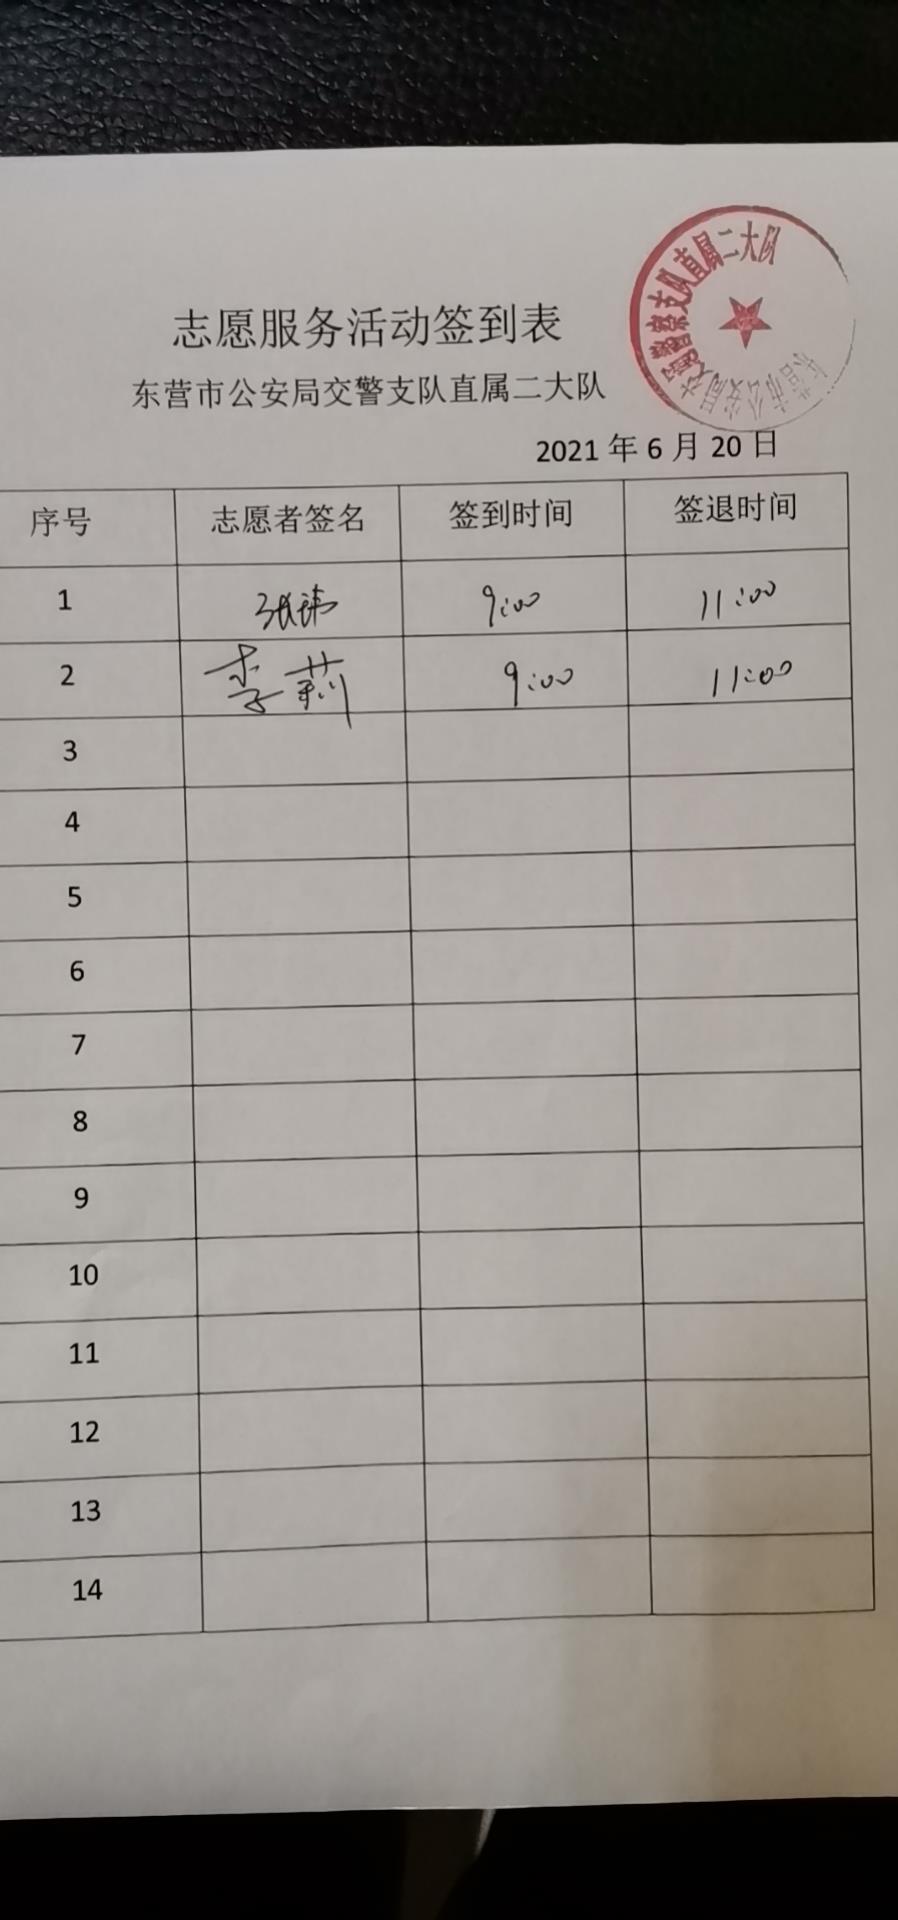 志愿服务活动签到表
东营市公安局交警支队直属二大队
东营市公安局交通警察支队直属二大队
2021年6月20日
序号 志愿者签名 签到时间 签退时间
1 张玮 9:00 11:00
2 李莉 9:00 11:00
3
4
5
6
7
8
9
10
11
12
13
14